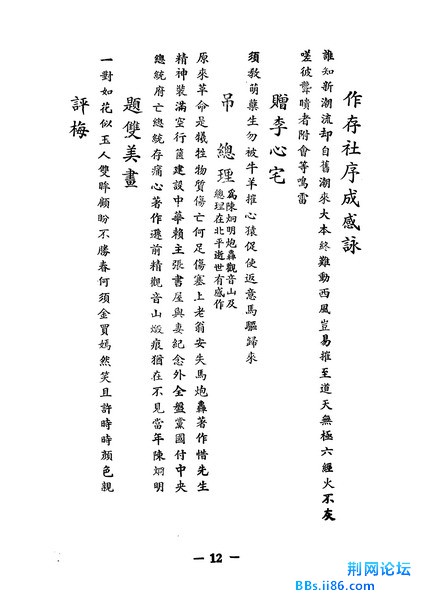 作存社序成感詠
誰知新潮流却自舊潮來大本終難動西風豈易摧至道天無極六經火不灰
嗟彼聾聵者附會等鳴雷
贈李心宅
須教萌蘗生勿被牛羊摧心猿促使返意馬驅歸來
吊 總理 為陳炯明炮轟觀音山及
總理在北平逝世有感作
原來革命是犧牲物質傷亡何足傷塞上老翁安失馬炮轟著作惜先生
精神裝滿空行篋建設中華賴主張書屋與妻紀念外全盤黨國付中央
總統府亡總統存痛心著作遷前精觀音山燬痕猶在不見當年陳炯明
題雙美畫
一對如花似玉人雙眸顧盼不勝春何須金買嫣然笑且許時時顏色親
評梅
— 12 —
荆网论坛
BBs.ii86.com